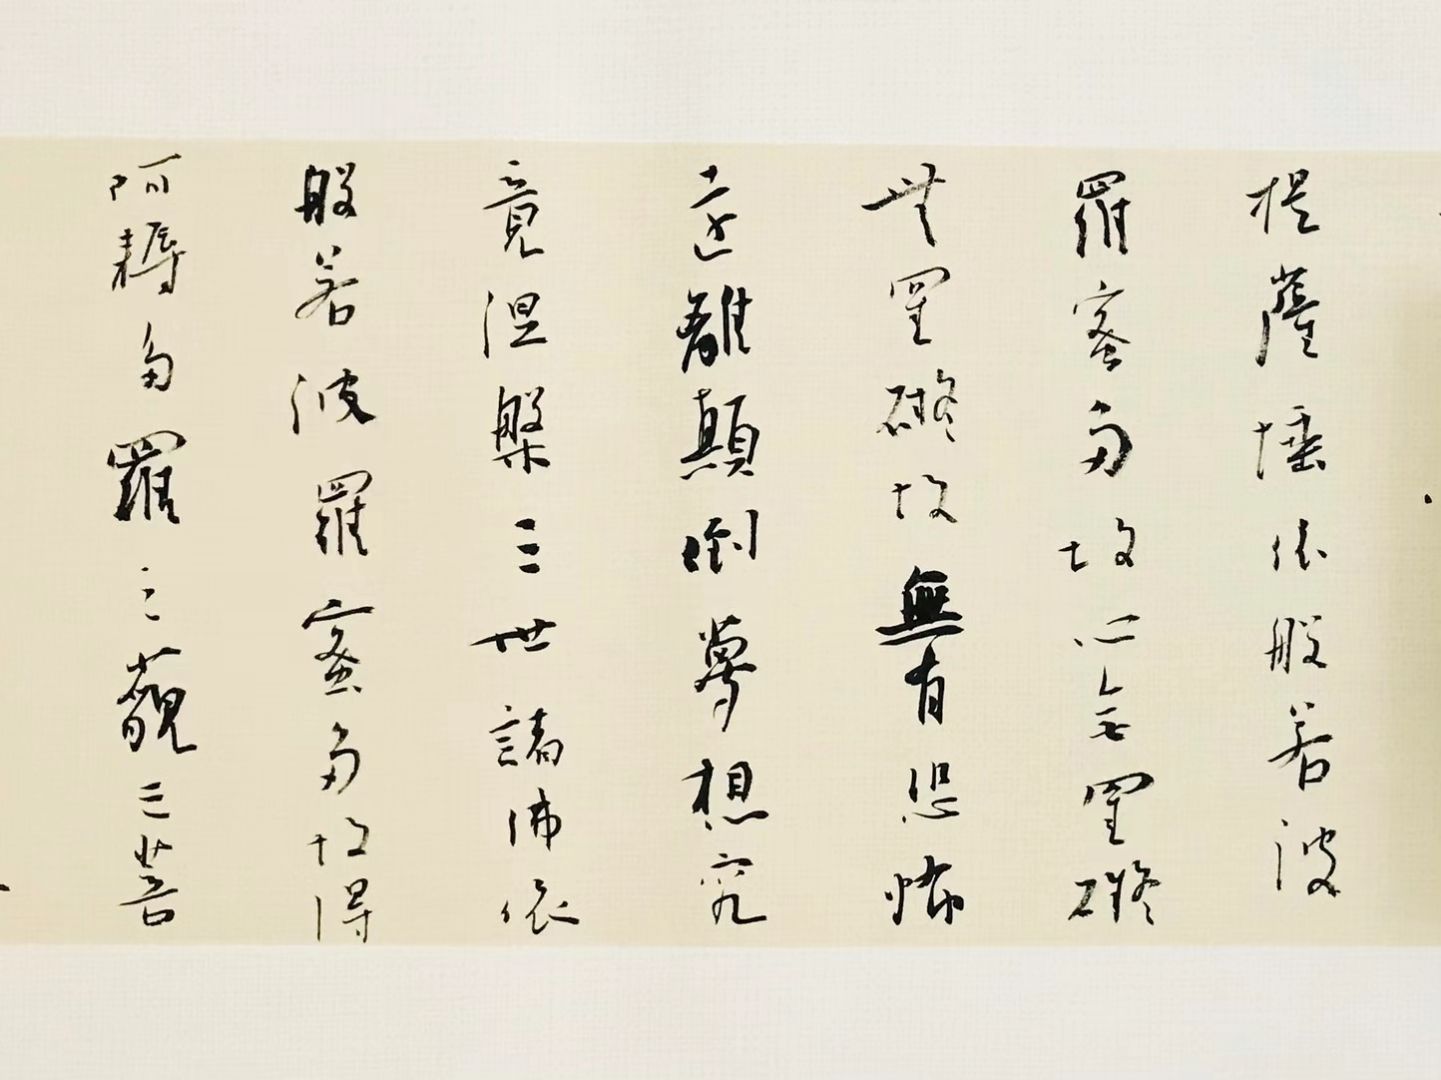 提薩埵依般若波
羅蜜多故心無罣礙
無罣礙故無有恐怖
遠離顛倒夢想究
竟涅槃三世諸佛依
般若波羅蜜多故得
阿耨多羅三藐三菩